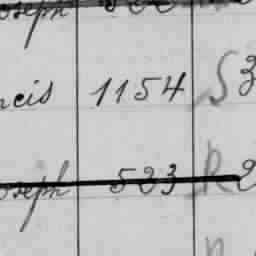 oseph
ncis 1154 S3
oseph 523 R2